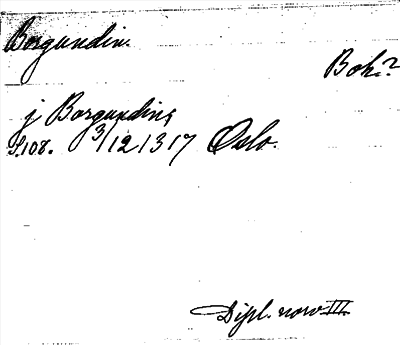 Borgundin.
Boh.?
j Borgundini
S.108. 3/12 1317 Oslo.
Dipl. norv. III.